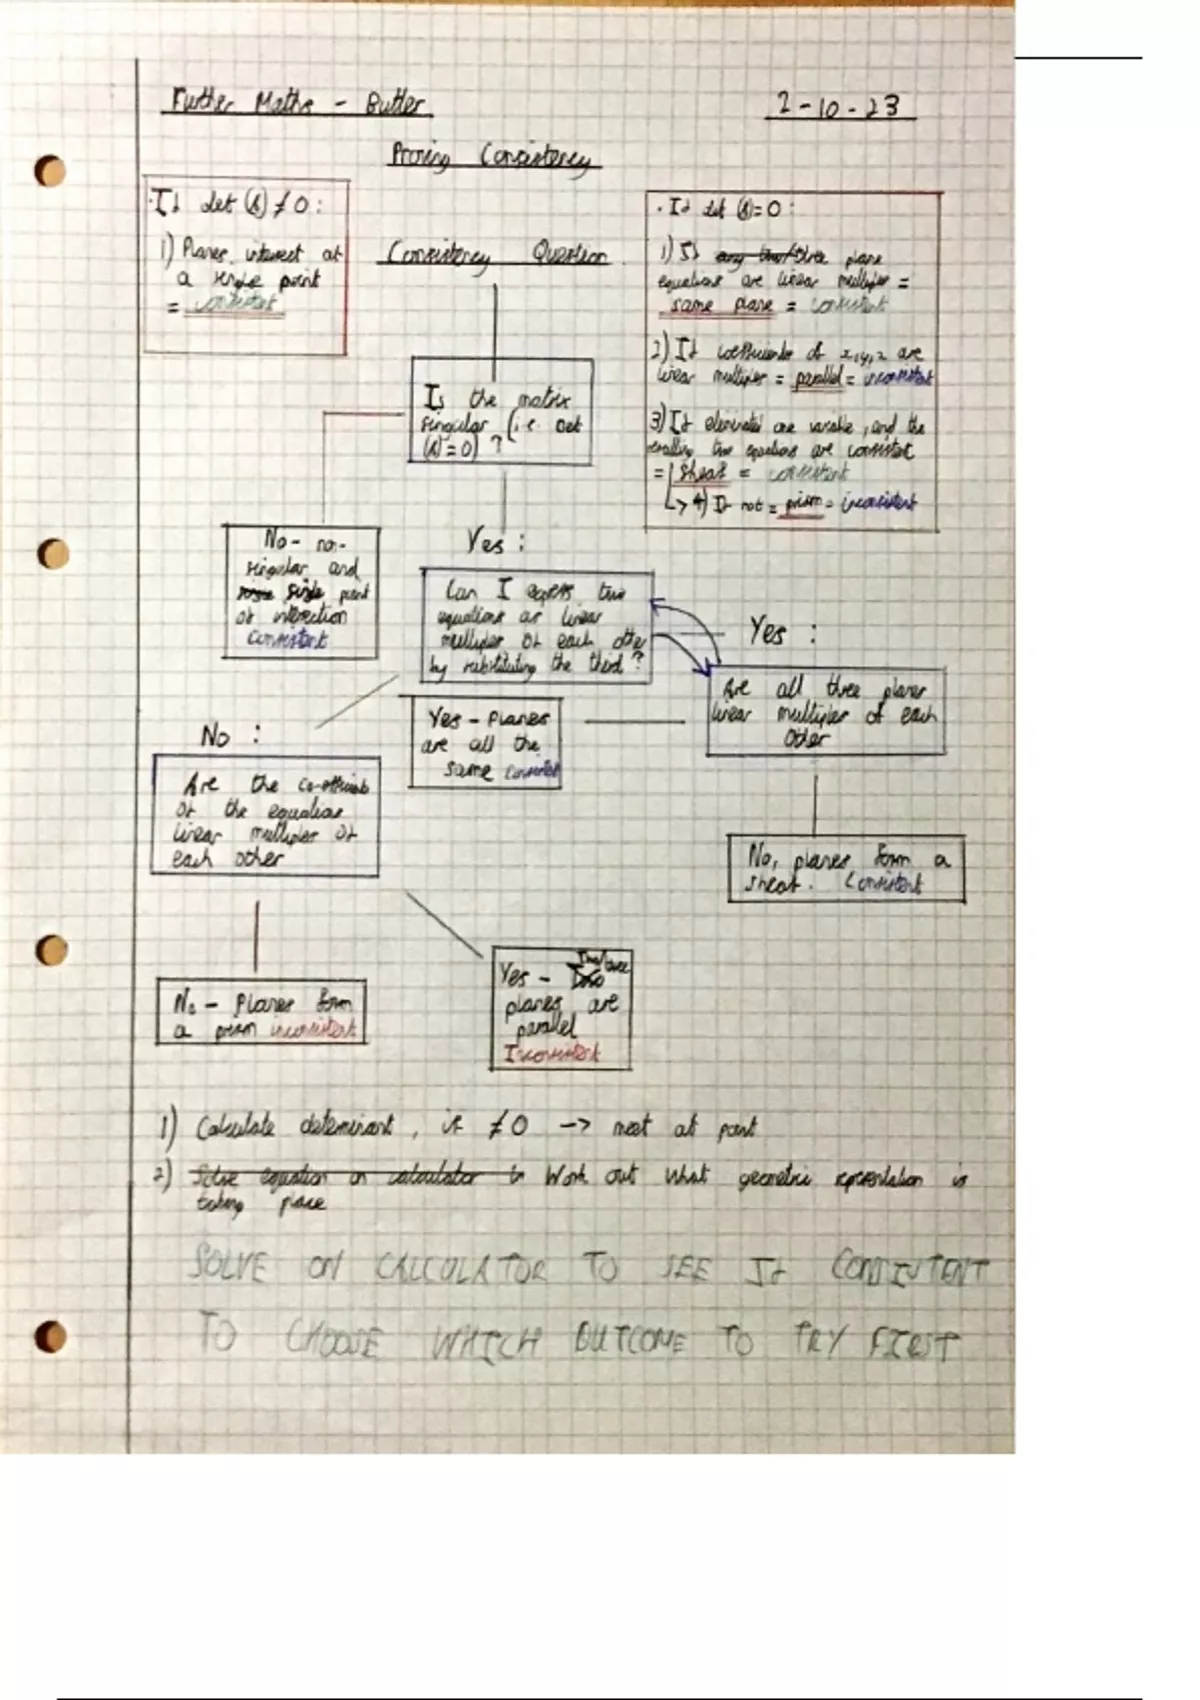 Further Maths - Butler
2-10-23
Proving Consistency
· If det (A) ≠ 0:
1) Planes intersect at
a single point
= consistent
Consistency Question
· If det (A) = 0:
1) If any two/three plane
equations are linear multiples =
same plane = consistent
2) If coefficients of x,y,z are
linear multiples = parallel = inconsistent
3) If eliminated one variable, and the
resulting two equations are consistent
= sheaf = consistent
↳ 4) If not = prism = inconsistent
Is the matrix
singular (i.e. Det
(A) = 0) ?
No - non-
singular and
single point
of intersection
Consistent
Yes :
Can I express two
equations as linear
multiples of each other
by substituting the third?
Yes :
Are all three planes
linear multiples of each
other
Yes - planes
are all the
same consistent
No :
Are the co-efficients
of the equations
linear multiples of
each other
No, planes form a
sheaf. Consistent
No - planes form
a prism inconsistent
Yes - Two/three
planes are
parallel
Inconsistent
1) Calculate determinant, if ≠ 0 -> meet at point
2) Solve equation on calculator to Work out what geometric representation is
taking place
SOLVE ON CALCULATOR TO SEE If CONSISTENT
TO CHOOSE WHICH OUTCOME TO TRY FIRST